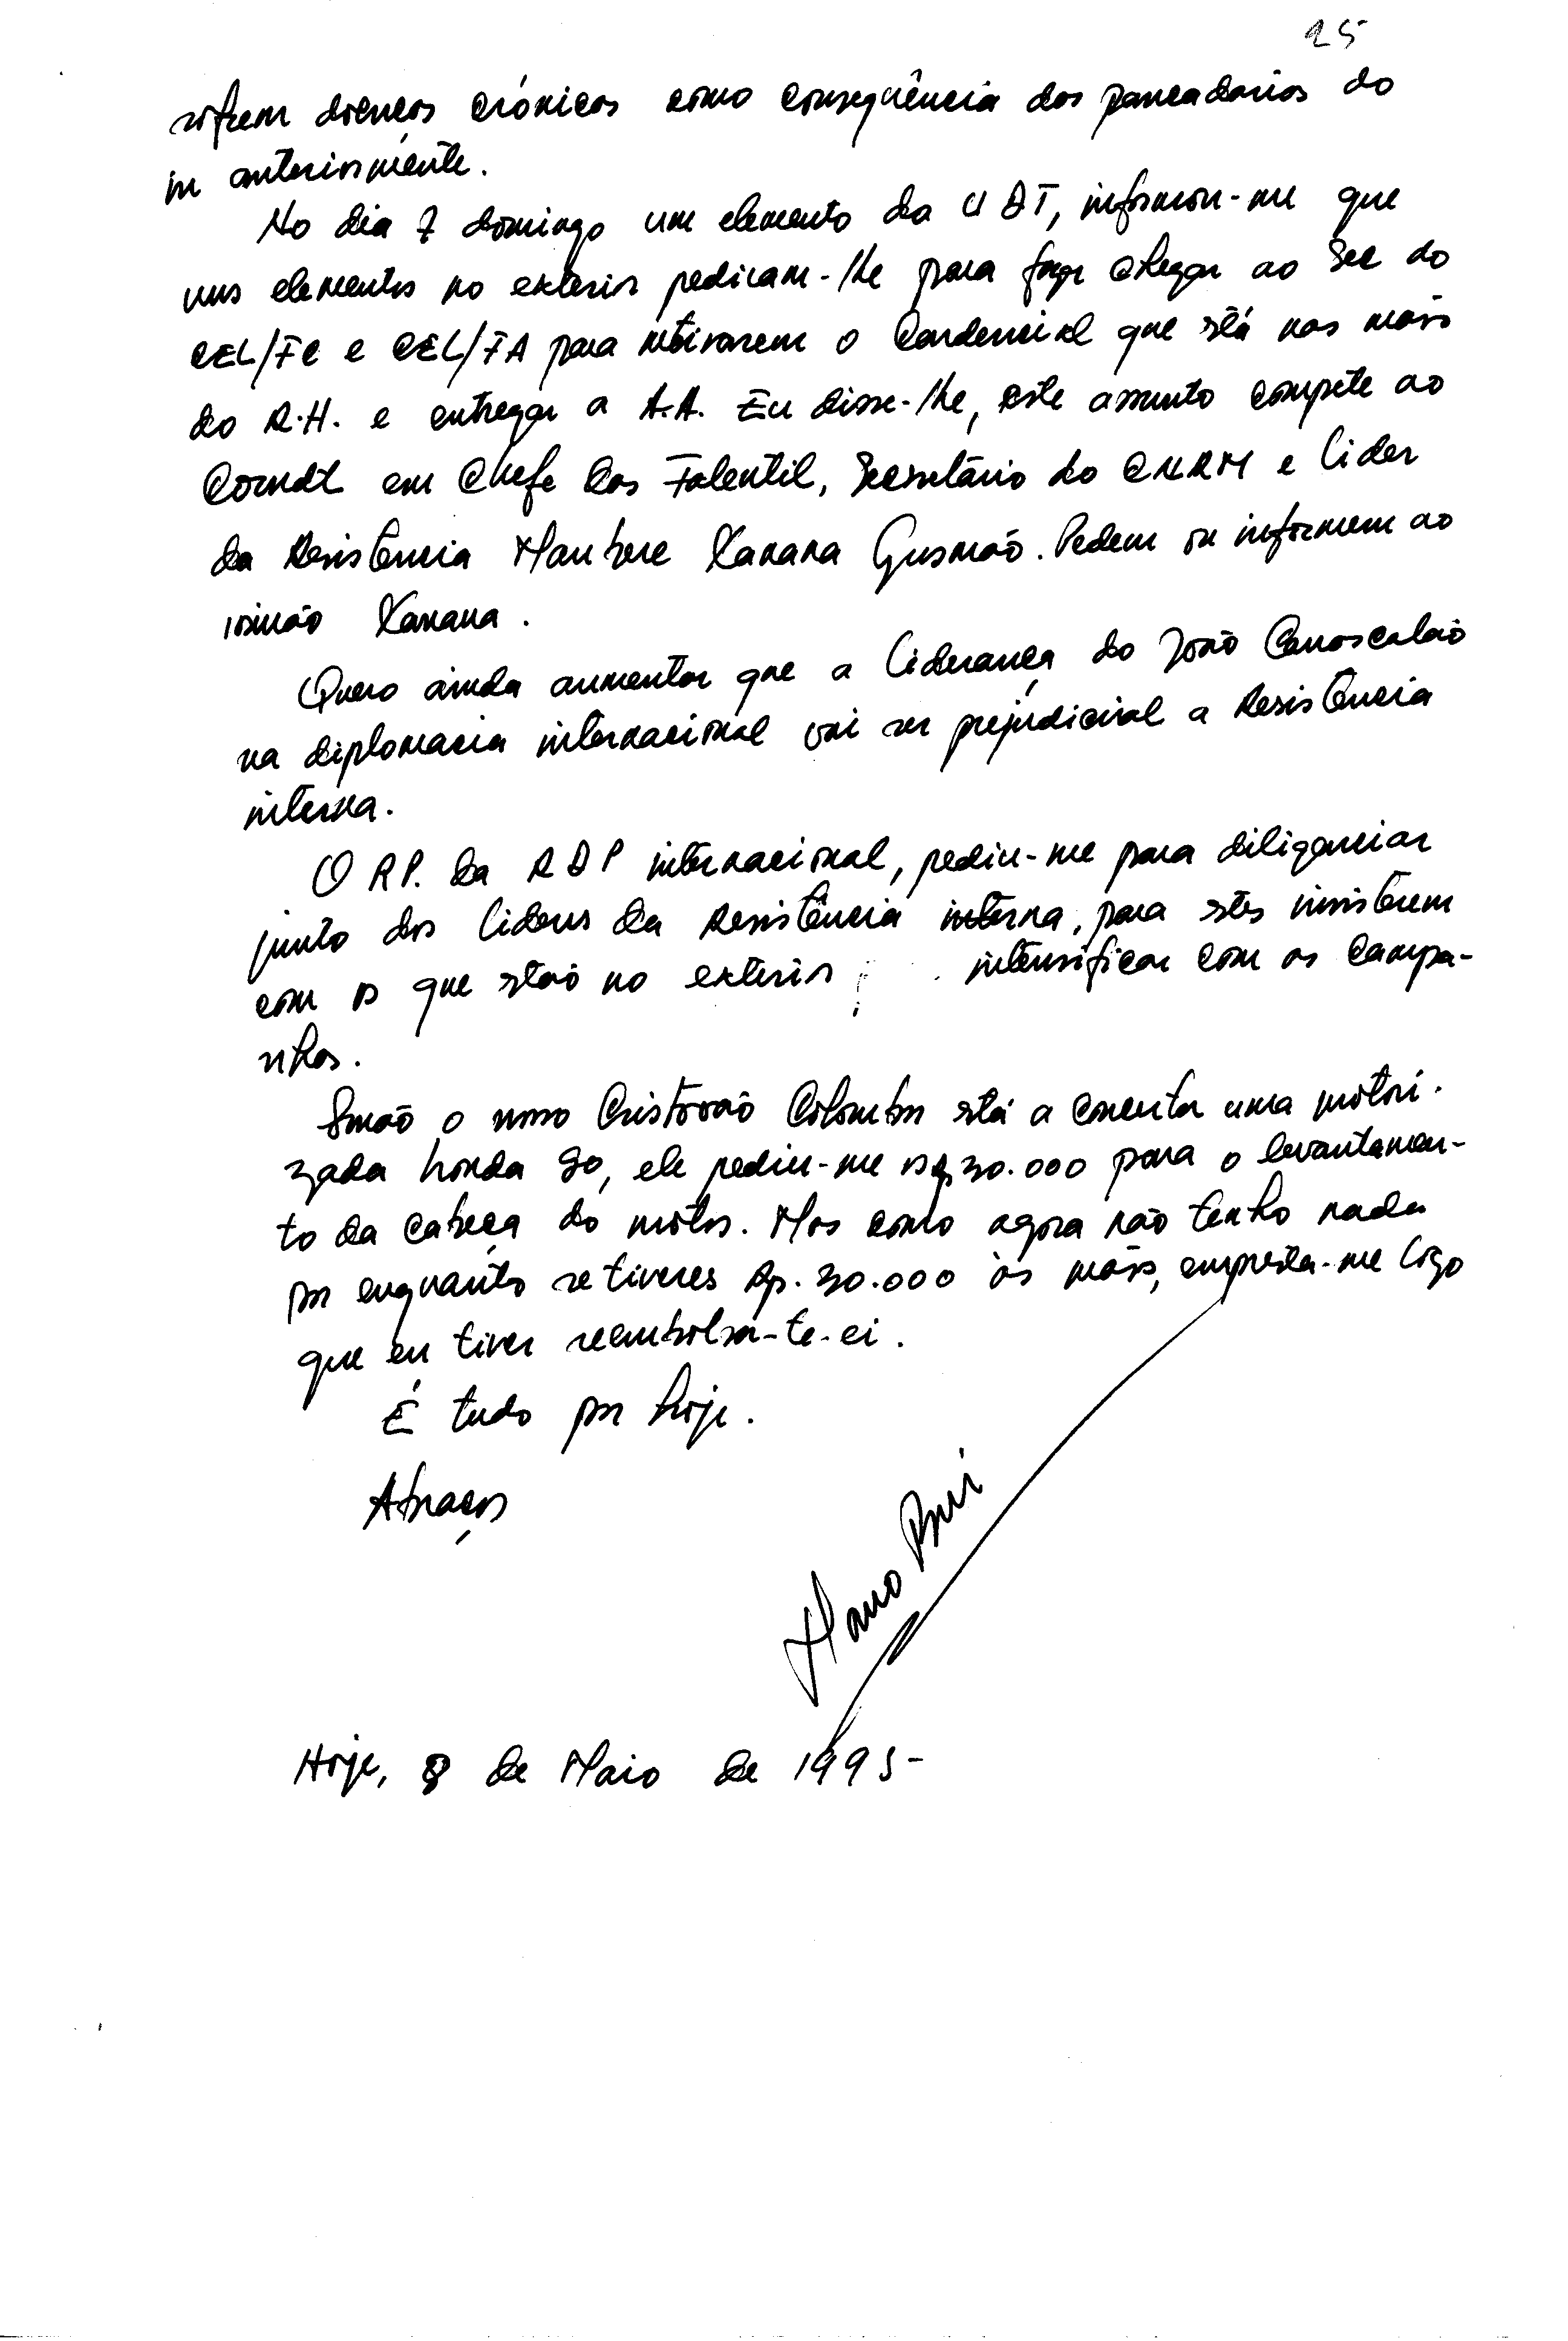 25
sofrem doenças crónicas como consequência das pancadarias do
in anteriormente.
No dia 7 domingo um elemento da UDT, informou-me que
uns elementos no exterior pediram-lhe para faze chegar ao Sec do
CEL/FC e CEL/FA para retirarem o Cardencial que stá nas mãos
do R.H. e entregar a A.A. Eu disse-lhe, este assunto compete ao
Comdt em Chefe das Falentil, Secretário do CNRM e lider
da Resistência Maubere Xanana Gusmão. Pedem ou informem ao
irmão Xanana.
Quero ainda aumentar que a liderança do João Carrascalão
na diplomacia internacional vai ser prejudicial a Resistência
interna.
O RP. da RDP internacional, pediu-me para diligenciar
junto dos lideres da Resistência interna, para stes insistirem
com os que stão no exterior intensificar com as campa-
nhas.
Irmão o nosso Cristovão Colombo stá a concerta uma motori-
zada honda 90, ele pediu-me 30.000 para o levantamen-
to da cabeça do motor. Mas como agora não tenho nada
por enquanto se tiveres Rp. 30.000 às mãos, empresta-me logo
que eu tiver reembolsa-te-ei.
É tudo por hoje.
Abraços
Mano Rui
Hoje, 8 de Maio de 1995-